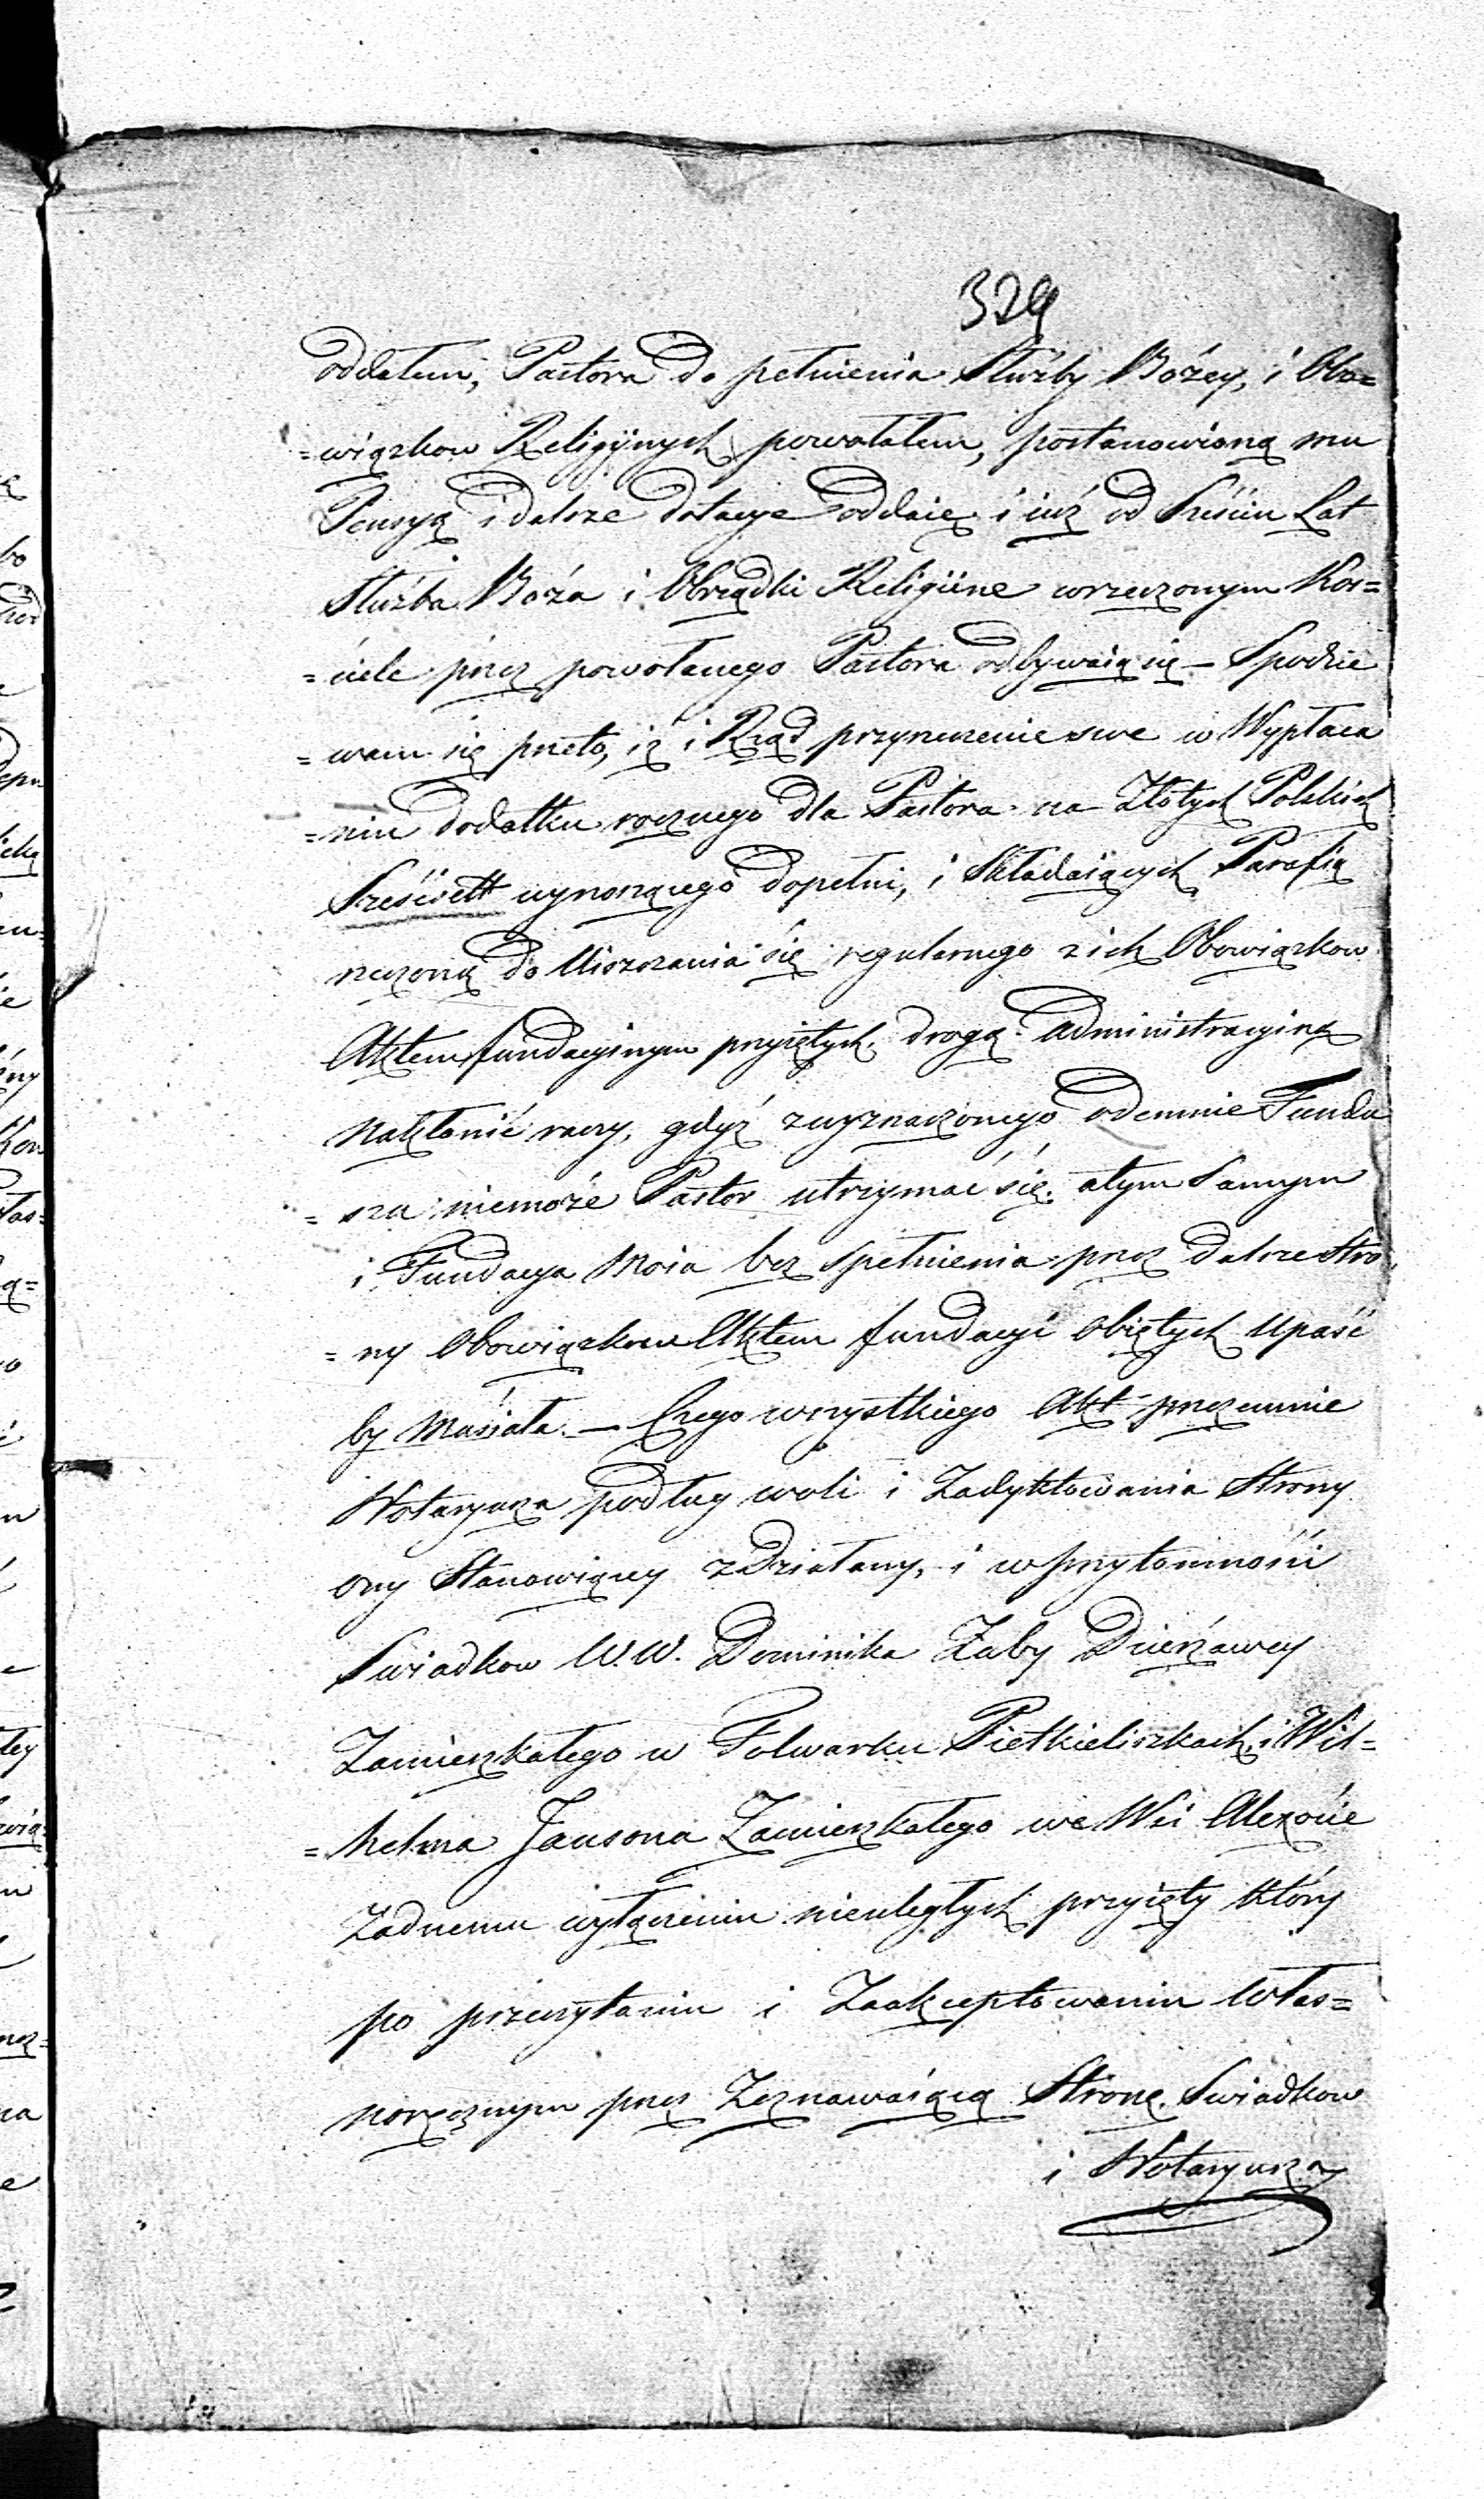 329
oddałem, Pastora do pełnienia Służby Bożey, i Obo=
=wiązkow Religijnych powołałem, postanowioną mu
Pensyą i dalsze dotacye oddaię i iuż od Sześciu Lat
Służba Boża i Obrządki Religiine wrzeczonym Koś=
=ciele przez powołanego Pastora odbywaią się – Spodzie
=wam się przeto, iż i Rząd przyrzeczenie swe w Wypłaca
=niu dodatku rocznego dla Pastora na Złotych Polskich
Sześćset wynoszącego dopełni, i Składaiących Parafią
rzeczoną do Uiszczania się regularnego z ich Obowiązkow
Aktem fundacyinym przyiętych, drogą Administracyiną
nakłonić raczy, gdyż z wyznaczonego odemnie Fundu
=szu niemoże Pastor utrzymać się, a tym Samym
i Fundacya Moia bez Spełnienia przez dalsze Stro
=ny Obowiązkow Aktem fundacyi obiętych upaść
by Musiała. – Czego wszystkiego Akt przezemnie
Notaryusza podług woli i Zadyktowania Strony
ony Stanowiącey zdziałany, i w przytomności
Swiadkow W.W. Dominika Zaby Dzierżawcy
Zamieszkałego w Folwarku Pietkieliszkach i Wil=
=helma Jansona Zamieszkałego we Wsi Alexocie
Żadnemu wyłączeniu nieuległych przyięty który
po przeczytaniu i Zaakceptowaniu Włas=
noręcznym przez Zeznawaiącą Stronę Swiadkow
i Notaryusza